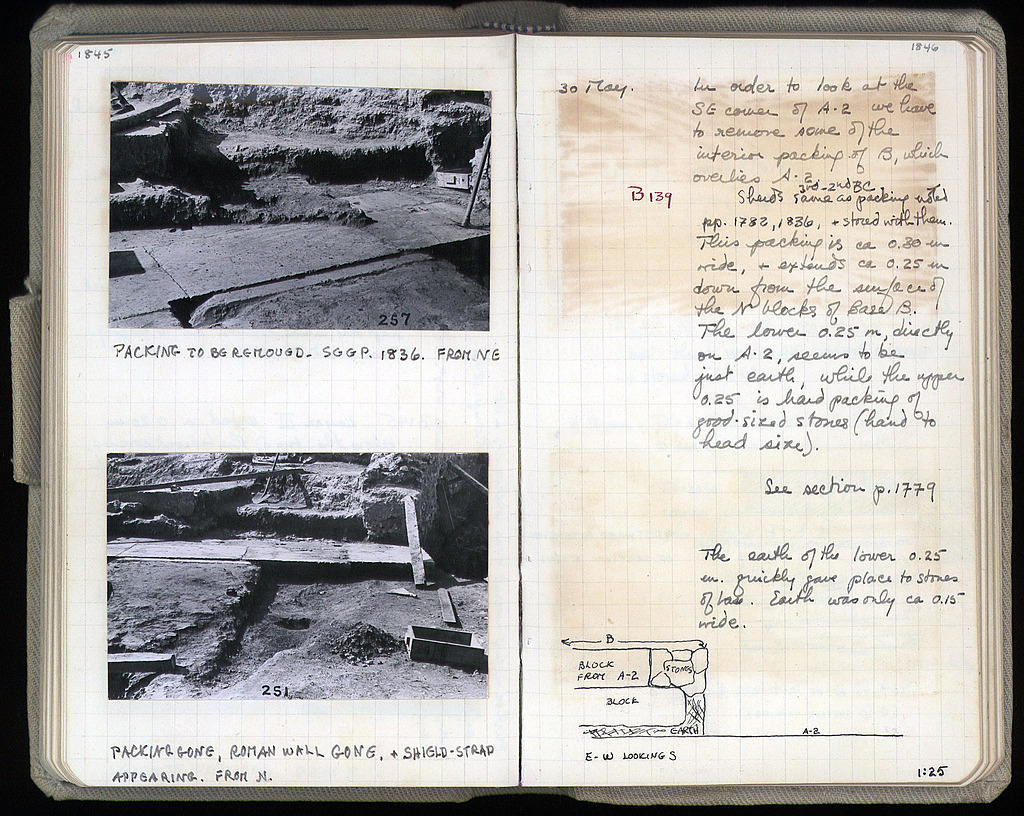 1845
257
PACKING TO BE REMOVED. SEE P. 1836. FROM NE
251
PACKING GONE, ROMAN WALL GONE, + SHIELD-STRAP
APPEARING. FROM N.
1846
30 May.
In order to look at the
SE corner of A-2 we have
to remove some of the
interior packing of B, which
overlies A-2.
3rd-2nd BC
B 139
Sherds same as packing noted
pp. 1782, 1836, + stored with them.
This packing is ca 0.30 m
wide, + extends ca 0.25 m
down from the surface of
the N blocks of Base B.
The lower 0.25 m, directly
on A-2, seems to be
just earth, while the upper
0.25 is hard packing of
good-sized stones (hand to
head size).
See section p. 1779
The earth of the lower 0.25
m. quickly gave place to stones
of base. Earth was only ca 0.15
wide.
B
BLOCK
FROM A-2
STONES
BLOCK
EARTH
A-2
E-W LOOKING S
1:25